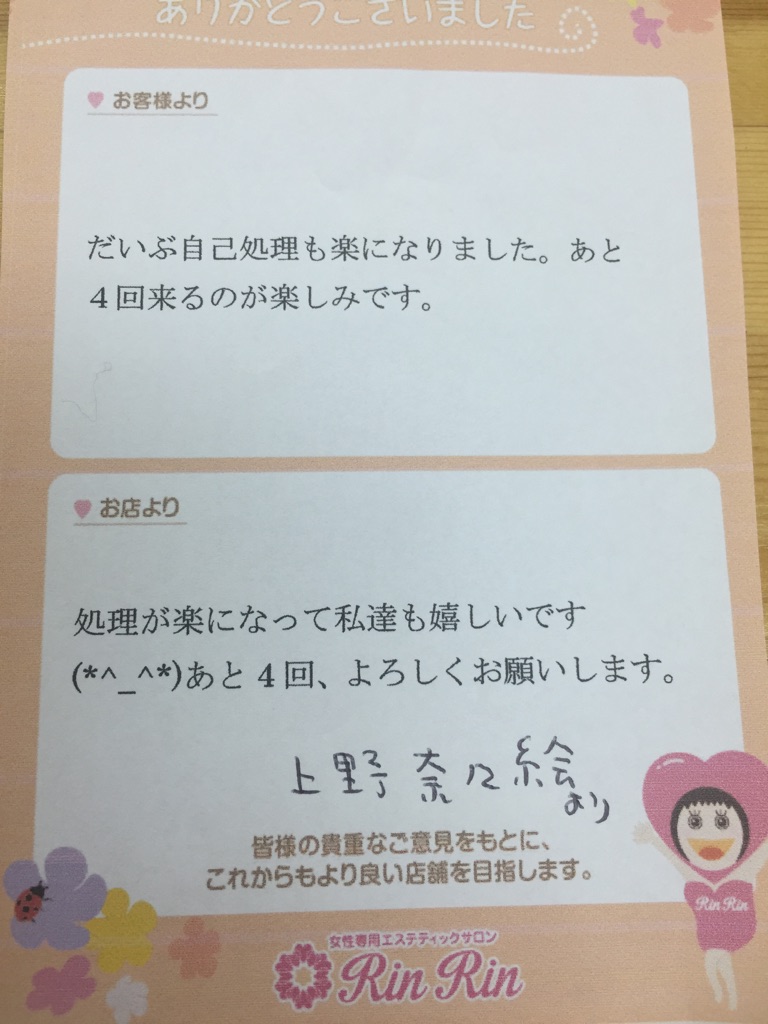 ありがとうございました
お客様より
だいぶ自己処理も楽になりました。あと
４回来るのが楽しみです。
お店より
処理が楽になって私達も嬉しいです
(*^_^*)あと４回、よろしくお願いします。
上野 奈々絵
より
皆様の貴重なご意見をもとに、
これからもより良い店舗を目指します。
Rin Rin
女性専用エステティックサロン
Rin Rin